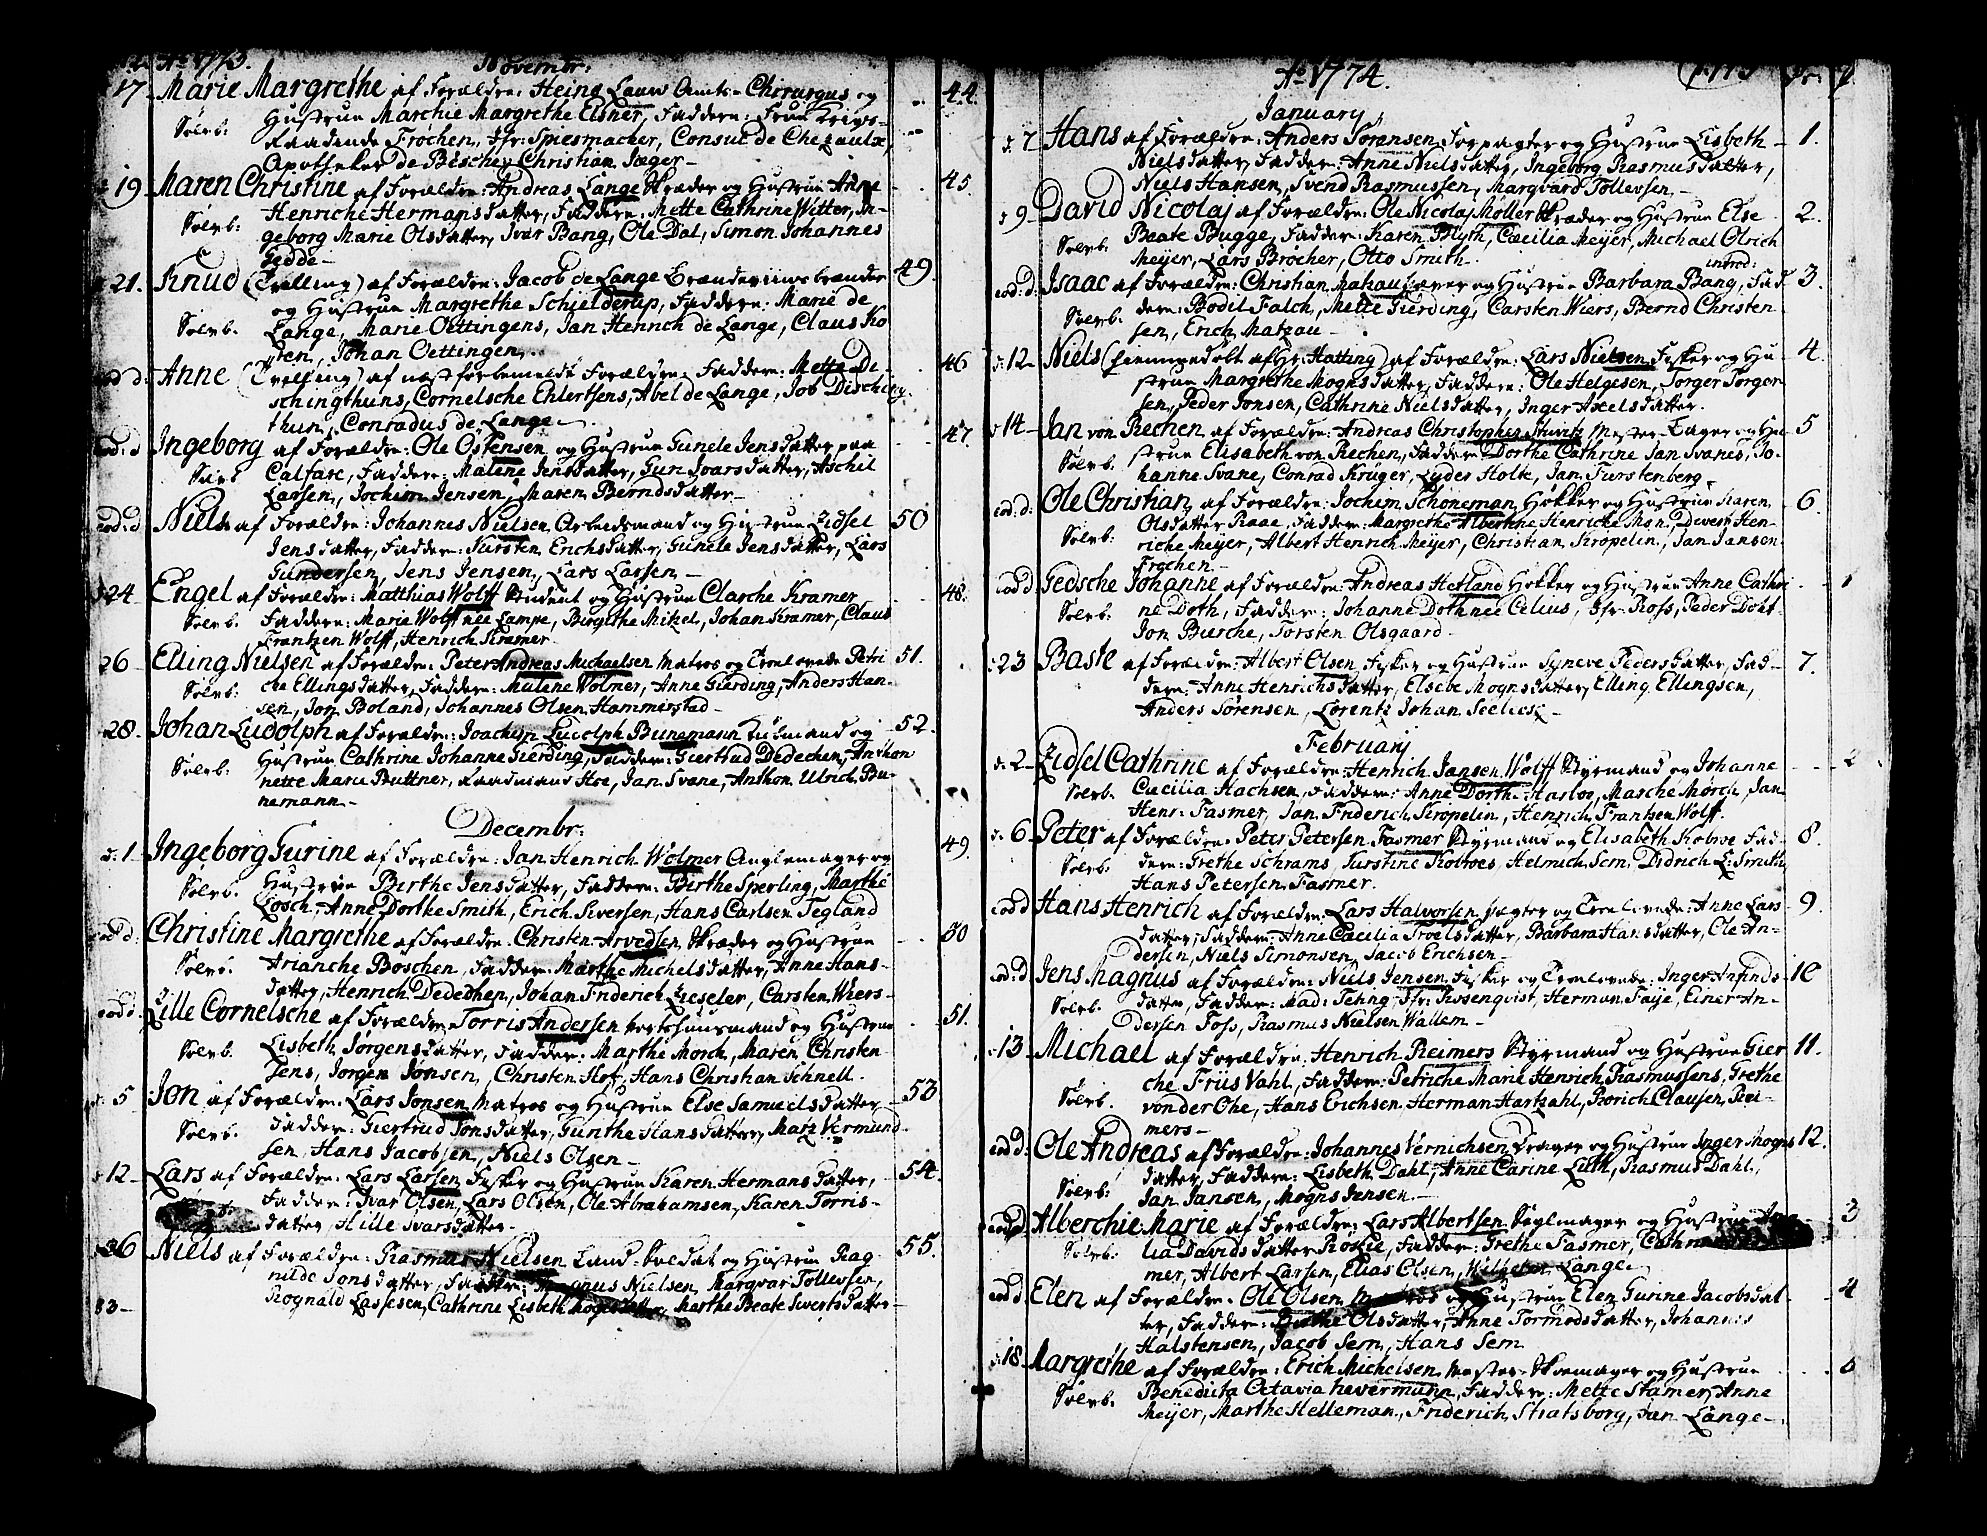 Ao 1773. Novembr:
17 Marie Margrethe af Forældre: Heing Lauw Amts-Chirurgus og 44.
Hustrue Marchie Margrethe Elsner, Faddere: Frue Krigs-
Raadinde Frochen, Jfr: Spiesmacher, Consul de Chezaulx,
Apotheker de Besche, Christian Jæger
19 Maren Christine af Forældre: Andreas Lange Skræder og Hustrue Anne 45.
Henriche Hermansdatter, Faddere: Mette Cathrine Witter, In-
geborg Marie Olsdatter, Ivar Bang, Ole Dal, Simon Johannes
Gedde
21. Knud (Tvilling) af Forældre: Jacob de Lange Brændeviinsbrænder 49.
og Hustrue Margrethe Schielderup, Faddere: Marie de
Lange, Marie Oettingens, Jan Henrich de Lange, Claus Ko
, Johan Oettingen.
eod d: Anne (Tvilling) af næstforbemeldte Forældre: Faddere: Mette Di- 46
schingthuns, Cornelsche Ehlertsens, Abel de Lange, Job Disching-
thun, Conradus de Lange
eod: d Ingeborg af Forældre: Ole Ostensen og Hustrue Gunele Jensdatter paa 47.
Calfare, Faddere: Malene Jensdatter, Guri Ivarsdatter, Aschil
Larsen, Jochim Jensen, Maren Berndsdatter
eod: d Niels af Forældre: Johannes Nielsen Arbeidsmand og Hustrue Zidsel 50
Jensdatter, Faddere: Kirsten Erichsdatter, Gunele Jensdatter, Lars
Gundersen, Jens Jensen, Lars Larsen
24 Engel af Forældre: Matthias Wolff Student og Hustrue Clarche Kramer 48.
Solvb. Faddere: Marie Wolff née Lampe, Birgithe Mitzel, Johan Kramer, Claus
Frantzen Wolff, Henrich Kramer
26 Elling Nielsen af Forældre: Peter Andreas Michaelsen Matros og Trolovede Petri 51.
Solvb. che Ellingsdatter, Faddere: Malene Wolmer, Anne Gierding, Anders Han-
sen, Jon Boland, Johannes Olsen Hammerstad
28 Johan Ludolph af Forældre: Joachim Ludolph Bunemann og 52.
Hustrue Cathrine Johanne Gierding, Faddere: Giertrud Dedechen, Anthon
nette Marie Buttner, Raadmand Hoe, Jan Svane, Anthon Ulrich Bu-
nemann
Decembr:
d. 1 Ingeborg Gurine af Forældre: Jan Henrich Wolmer og 49.
Hustrue Birthe Jensdatter, Faddere: Birthe Sperling, Marthe
Losch, Anne Dorthe Smith, Erich Siversen, Hans Carlsen Tegland
eod d: Christine Margrethe af Forældre: Christen Arvedsen Skræder og Hustrue 50
Arianche Böschen, Faddere: Marthe Michelsdatter, Anne Hans-
datter, Henrich Dedechen, Johan Friderich Zieseler, Carsten Wiers
eod d: Lille Cornelsche af Forældre Torris Andersen og Hustrue 51.
Solvb. Lisbeth Jorgensdatter, Faddere: Marthe Morch, Maren Christen-
sens, Jorgen Jonsen, Christen Slof, Hans Christian Schnell.
5 Jon af Forældre: Lars Jonsen Matros og Hustrue Else Samuelsdatter 53
Solvb. Faddere: Giertrud Jonsdatter, Gunthe Hansdatter, Matz Vermund-
sen, Hans Jacobsen, Niels Olsen
12 Lars af Forældre: Lars Larsen Fisker og Hustrue Karen Hermansdatter, 54.
Faddere: Ivar Olsen, Lars Olsen, Ole Abrahamsen, Karen Torris-
datter, Hille Ivarsdatter
26 Niels af Forældre: Rasmus Nielsen Land-Soldat og Hustrue Rag 55.
nilde Jonsdatter, Faddere: Magnus Nielsen, Marqvar Tollevsen,
Rognald Lassesen, Cathrine Lisbeth, Marthe Beate Sivertsdatter
Ao 1774.
January
7 Hans af Forældre: Anders Sörensen Forpagter og Hustrue Lisbeth 1.
Nielsdatter, Faddere: Anne Nielsdatter, Ingeborg Rasmusdatter,
Niels Hansen, Svend Rasmussen, Marqvard Tollevsen
9 David Nicolaj af Forældre: Ole Nicolaj Möller Skræder og Hustrue Else 2.
Solvb. Beate Bugge, Faddere: Karen Blyth, Cæcilia Meyer, Michael Olrich
Meyer, Lars Brocher, Otto Smith
eod: d. Isaac af Forældre: Christian Matzau og Hustrue Barbara Bang, Fad 3.
Solvb. dere: Bodil Falch, Mette Gierding, Carsten Wiers, Bernd Christen-
sen, Erich Matzau
12 Niels (hiemmedöbt af Hr: Hatting) af Forældre: Lars Nielsen Fisker og Hu- 4.
strue Margrethe Mognsdatter, Faddere: Ole Helgesen, Torger Torger
sen, Peder Jonsen, Cathrine Nielsdatter, Inger Axelsdatter.
14 Jan von Rechen af Forældre: Andreas Christopher Sturtz Mester og Hu- 5
Solvb. strue Elisabeth von Rechen, Faddere Dorthe Cathrine Jan Svanes, Jo-
hanne Svane, Conrad Krüger, Lyder Holte, Jan Furstenberg
eod: d: Ole Christian af Forældre: Jochim Schoneman Hökker og Hustrue Karen 6.
Solvb. Olsdatter Raae, Faddere: Margrethe Albertine Henriche Mon, Divert Hen-
riche Meyer, Albert Henrich Meyer, Christian Kröpelin, Jan Jansen
Frochen
eod d Gedsche Johanne af Forældre: Andreas Hetland Hökker og Hustrue Anne Cathri 1
Solvb. ne Doth, Faddere: Johanne Doth née Celius, Jfr: Ross, Peder Doht
Jon Bierche, Torsten Olsgaard
23 Baste af Forældre: Albert Olsen Fisker og Hustrue Syneve Pedersdatter, Fad- 7.
dere: Anne Henrichsdatter, Elsebe Mognsdatter, Elling Ellingsen,
Anders Sörensen, Lorentz Johan Seeliesz
February
2 Zidsel Cathrine af Forældre: Henrich Jansen Wolff Styrmand og Johanne 2
Solvb. Cæcilia Hachsen, Faddere: Anne Dorthe Harloe, Masche Mörch, Jan
Henr: Fasmer, Jan Friderich Kröpelin, Henrich Frantzen Wolff.
6 Peter af Forældre: Peter Petersen Fasmer Styrmand og Elisabeth Kobroe Fad- 8.
Solvb. dere: Grethe Schrams, Kirstine Kobroes, Helmich Sem, Didrich L: Smith,
Hans Petersen Fasmer.
eod d Hans Henrich af Forældre: Lars Halvorsen og Trolovede: Anne Lars- 9.
datter, Faddere: Anne Cæcilia Troelsdatter, Barbara Hansdatter, Ole An-
dersen, Niels Simonsen, Jacob Erichsen
eod: d Jens Magnus af Forældre: Niels Jensen Fisker og Trolovede: Inger Anfinds- 10
Solvb. datter, Faddere: Mad: Tehng, Jfr: Rosenqvist, Herman Faye, Einer An-
dersen Foss, Rasmus Nielsen Wallem
13 Michael af Forældre: Henrich Reimers Styrmand og Hustrue Gier 11.
Solvb. che Friis Vahl, Faddere: Petriche Marie Henrich Rasmussens, Grethe
von der Ohe, Hans Erichsen, Herman Hartzahl, Rorich Clausen Rei-
mers
eod d: Ole Andreas af Forældre: Johannes Vernichsen Drager og Hustrue Inger Mogns 12.
Solvb: datter, Faddere: Lisbeth Dahl, Anne Carine Luth, Rasmus Dahl,
Jan Jansen, Mogns Jensen
eod d Alberchie Marie af Forældre: Lars Albertsen Seglmager og Hustrue 3
Solvb. lia Davidsdatter Roskie, Faddere: Grethe Fasmer,
mer, Albert Larsen, Elias Olsen, Wilhelm Lange
eod d Elen af Forældre: Ole Olsen Matros og Hustrue Elen Gurine Jacobsdat- 4
ter, Faddere: Birthe Olsdatter, Anne Tormodsdatter, Johannes
Halstensen, Jacob Sem, Hans Sem
18 Margrethe af Forældre: Erich Michelsen Mester Skomager og Hustrue
Solvb. Benedicta Octavia Nevermann, Faddere: Mette Stamer, Anne
Meyer, Marthe Helleman, Friderich Stratsborg, Jan Lange